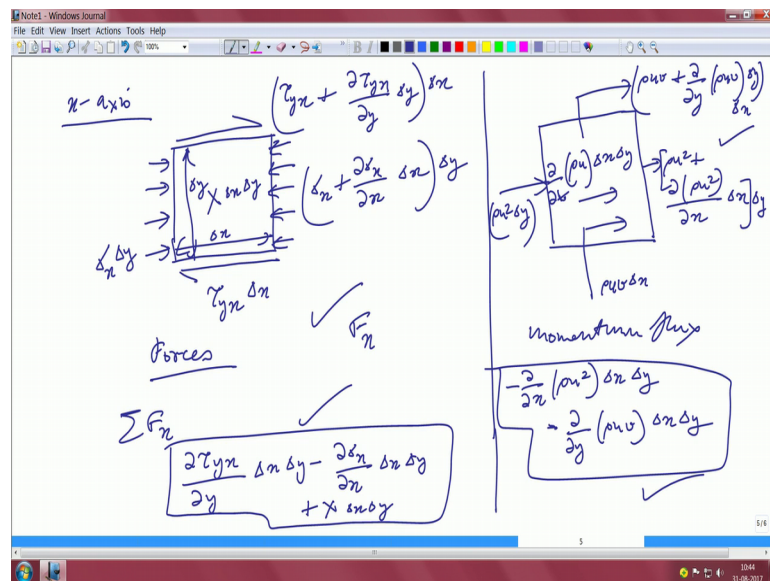 Note1 - Windows Journal
File Edit View Insert Actions Tools Help
100%
x-axis
(τyx + ∂τyx/∂y Δy)Δx
Δy
X Δx Δy
Δx
(σx + ∂σx/∂x Δx)Δy
σxΔy
τyx Δx
Fx
Forces
ΣFx
∂τyx/∂y Δx Δy - ∂σx/∂x Δx Δy
+ X Δx Δy
(ρuv + ∂/∂y (ρuv) Δy)
Δx
∂/∂t (ρu) Δx Δy
[ρu² +
∂(ρu²)/∂x Δx]Δy
(ρu²Δy)
ρuvΔx
momentum flux
-∂/∂x (ρu²) Δx Δy
- ∂/∂y (ρuv) Δx Δy
5/6
5
10:44
31-08-2017